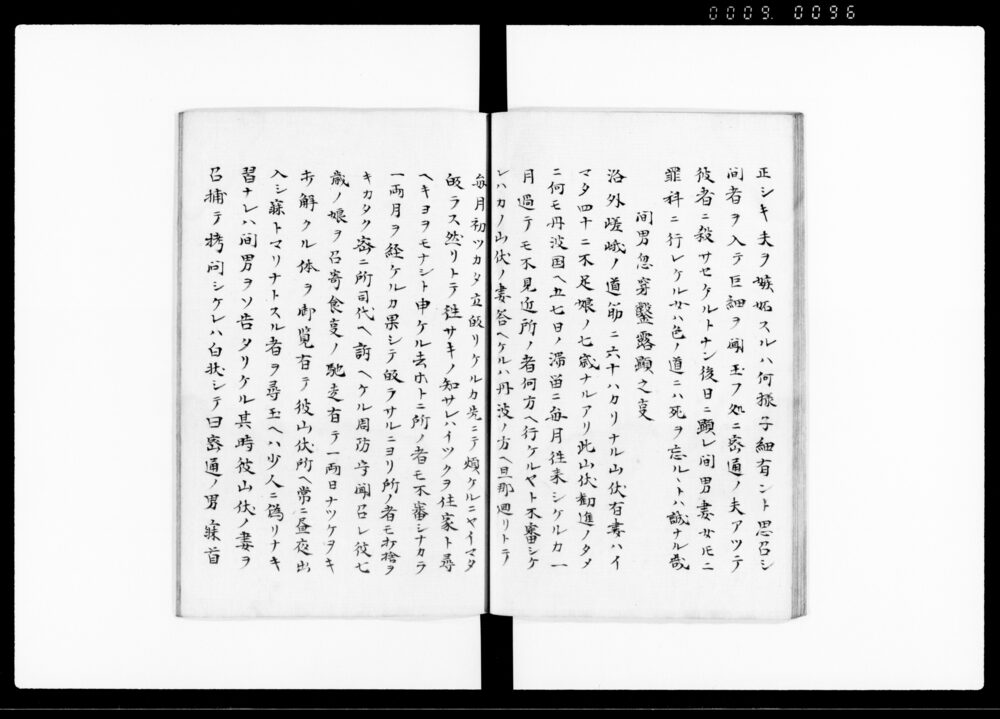 0009. 0096
正シキ夫ヲ嫉妬スルハ何様子細有ント思召シ
間者ヲ入テ巨細ヲ聞玉フ処ニ密通ノ夫アツテ
彼者ニ殺サセケルトナン後日ニ顕レ間男妻女ドモニ
罪科ニ行レケル女ハ色ノ道ニハ死ヲ忘ルヽトハ誠ナル哉
間男忽穿鑿露顕之㕝
洛外嵯峨ノ道筋ニ六十ハカリナル山伏有妻ハイ
マタ四十ニ不足娘ノ七歳ナルアリ此山伏勧進ノタメ
ニ何モ丹波国ヘ五七日ノ滞留ニ毎月徃来シケルカ一
月過テモ不見近所ノ者何方ヘ行ケルヤト不審シケ
レハカノ山伏ノ妻答ヘケルハ丹波ノ方ヘ旦那廻リトテ
毎月初ツカタ立皈リケルカ先ニテ煩ケルニヤイマタ
皈ラス然リトテ徃サキノ知サレハイツクヲ住家ト尋
ヘキヨヲモナシト申ケル去ホトニ所ノ者モ不審シナカラ
一両月ヲ経ケルカ果シテ皈ラサルニヨリ所ノ者モ打捨ヲ
キカタク密ニ所司代ヘ訴ヘケル周防守聞召レ彼七
歳ノ娘ヲ召寄食㕝ノ馳走有テ一両日ナツケヲキ
打解クル体ヲ御覧有テ彼山伏所ヘ常ニ昼夜出
入シ寐トマリナトスル者ヲ尋玉ヘハ少人ニ偽リナキ
習ナレハ間男ヲソ告タリケル其時彼山伏ノ妻ヲ
召捕テ拷問シケレハ白状シテ曰密通ノ男寐首